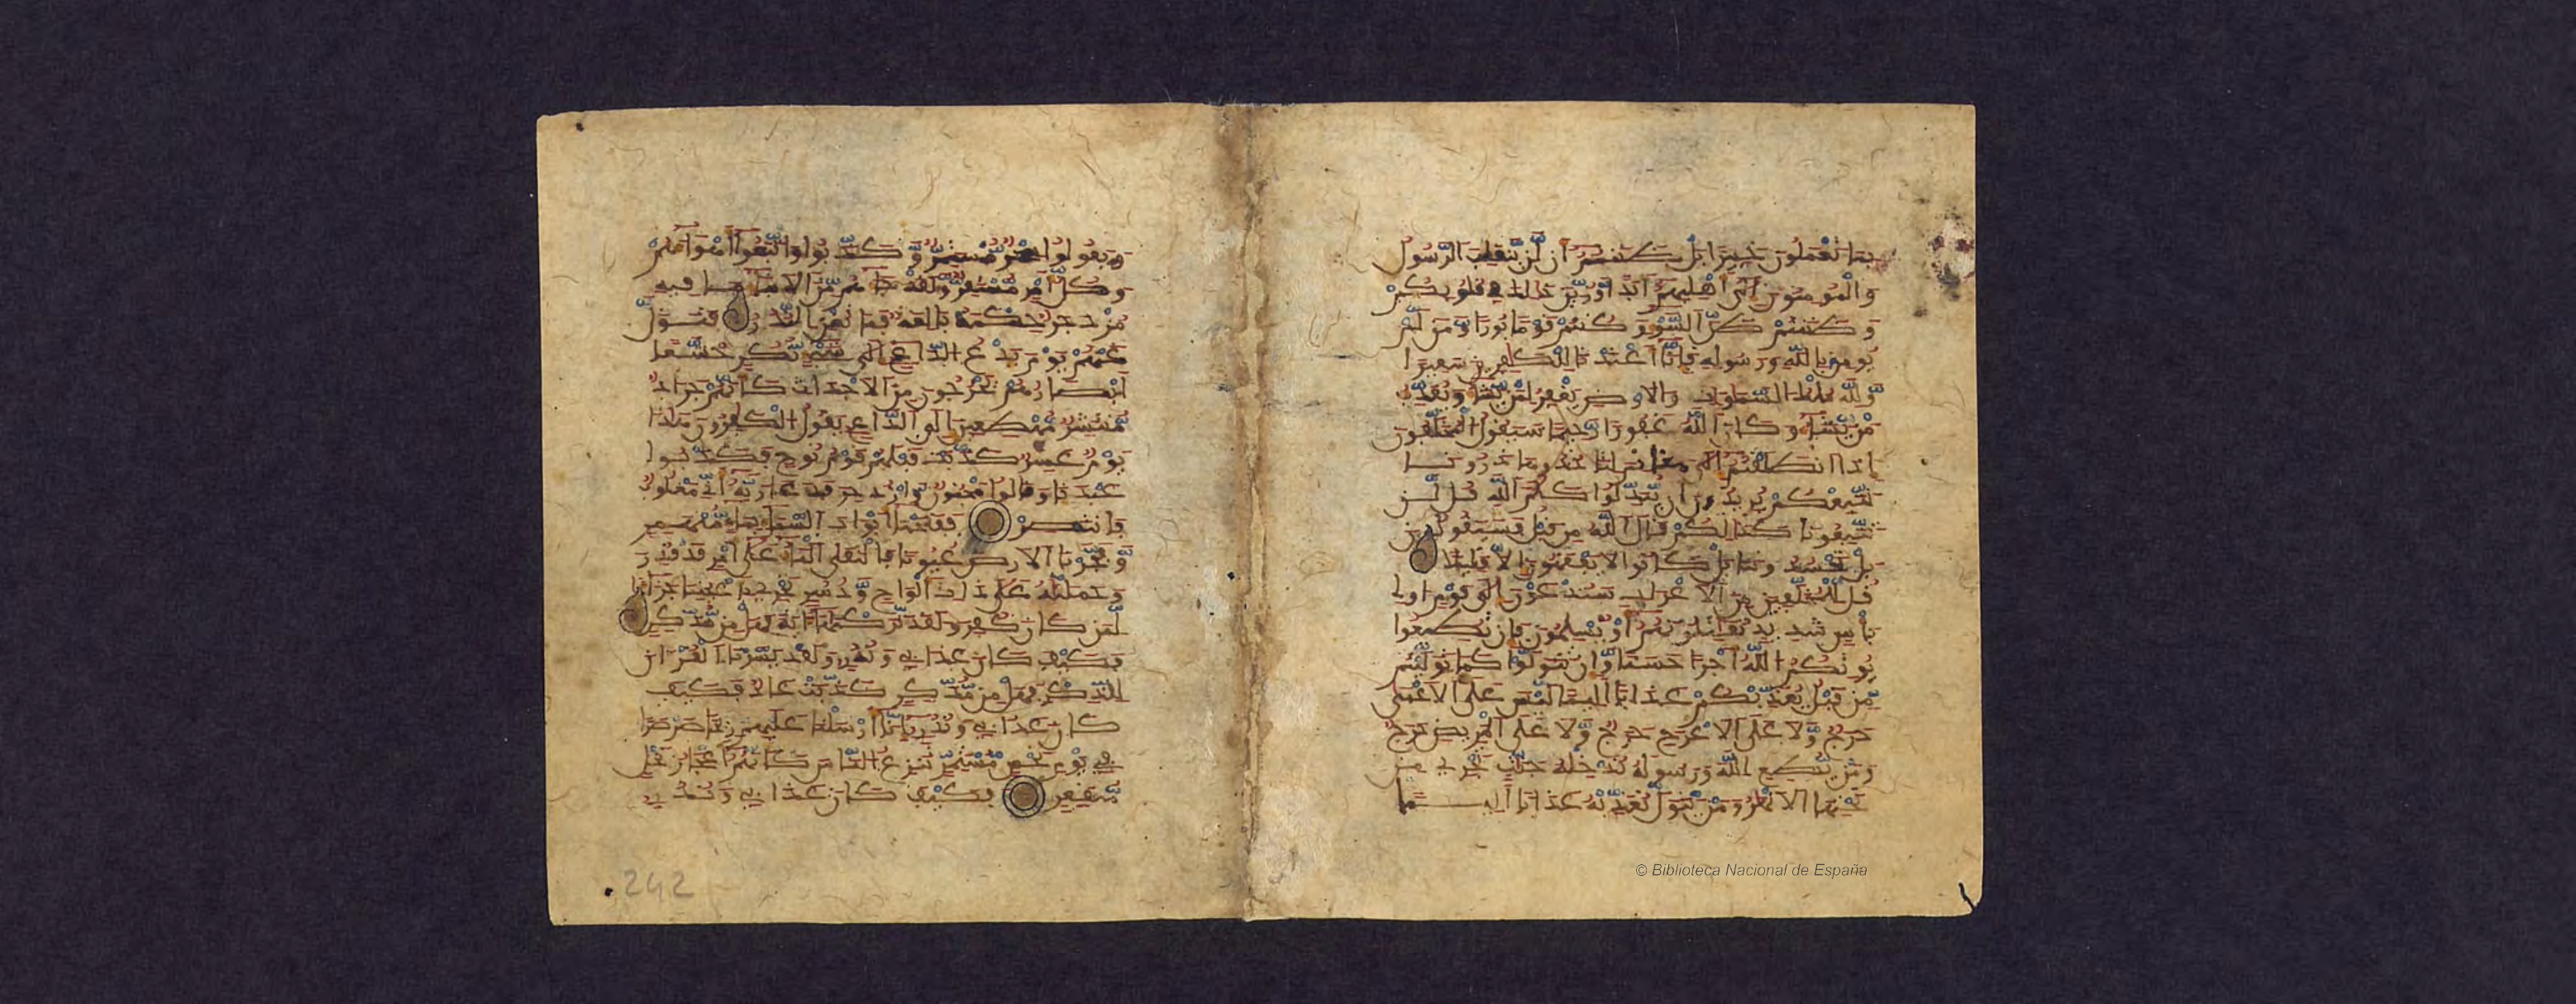 بما تعملون خبيرا بل ظننتم ان لن ينقلب الرسول
والمومنون الى اهليهم ابدا وزين ذلك في قلوبكم
وظننتم ظن السوء وكنتم قوما بورا ومن لم
يومن بالله ورسوله فانا اعتدنا للكفرين سعيرا
ولله ملك السموات والارض يغفر لمن يشاء ويعذب
من يشاء وكان الله غفورا رحيما سيقول المخلفون
اذا انطلقتم الى مغانم لتاخذوها ذرونا
نتبعكم يريدون ان يبدلوا كلم الله قل لن
تتبعونا كذلكم قال الله من قبل فسيقولون
بل تحسدوننا بل كانوا لا يفقهون الا قليلا
قل للمخلفين من الاعراب ستدعون الى قوم اولي
باس شديد تقتلونهم او يسلمون فان تطيعوا
يوتكم الله اجرا حسنا وان تتولوا كما توليتم
من قبل يعذبكم عذابا اليما ليس على الاعمى
حرج ولا على الاعرج حرج ولا على المريض حرج
ومن يطع الله ورسوله ندخله جنت تجري من
تحتها الانهر ومن يتول نعذبه عذابا اليما
ويقولوا سحر مستمر وكذبوا واتبعوا اهواءهم
وكل امر مستقر ولقد جاءهم من الانباء ما فيه
مزدجر حكمة بالغة فما تغن النذر فتول
عنهم يوم يدع الداع الى شيء نكر خشعا
ابصارهم يخرجون من الاجداث كانهم جراد
منتشر مهطعين الى الداع يقول الكفرون هذا
يوم عسر كذبت قبلهم قوم نوح فكذبوا
عبدنا وقالوا مجنون وازدجر فدعا ربه اني مغلوب
فانتصر ففتحنا ابواب السماء بماء منهمر
وفجرنا الارض عيونا فالتقى الماء على امر قد قدر
وحملنه على ذات الواح ودسر تجري باعيننا جزاء
لمن كان كفر ولقد تركنها اية فهل من مدكر
فكيف كان عذابي ونذر ولقد يسرنا القران
للذكر فهل من مدكر كذبت عاد فكيف
كان عذابي ونذر انا ارسلنا عليهم ريحا صرصرا
في يوم نحس مستمر تنزع الناس كانهم اعجاز نخل
منقعر فكيف كان عذابي ونذر
242
© Biblioteca Nacional de España